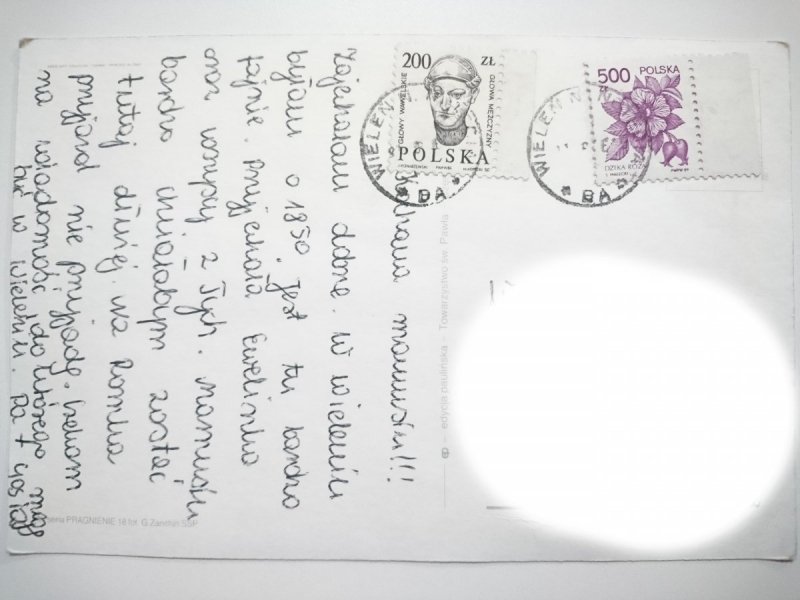 Kochana mamusiu!!!
Zajechałam dobrze. W Wieleniu
byłam o 18 50. Jest tu bardzo
fajnie. Przyjechała Ewelinka
oraz wszyscy z Tych. Mamusiu
bardzo chciałabym zostać
tutaj dłużej. Na Romka
przyjazd nie przyjadę. Czekam
na wiadomość do którego mogę
być w Wieleniu. Pa
200 ZŁ
GŁOWY WAWELSKIE
GŁOWA MĘŻCZYZNY
POLSKA
500 ZŁ POLSKA
DZIKA RÓŻA
WIELEŃ
BA
WIELEŃ
BA
edycja paulińska Towarzystwo św. Pawła
PRAGNIENIE 18 fot. G. Zanchin SSP